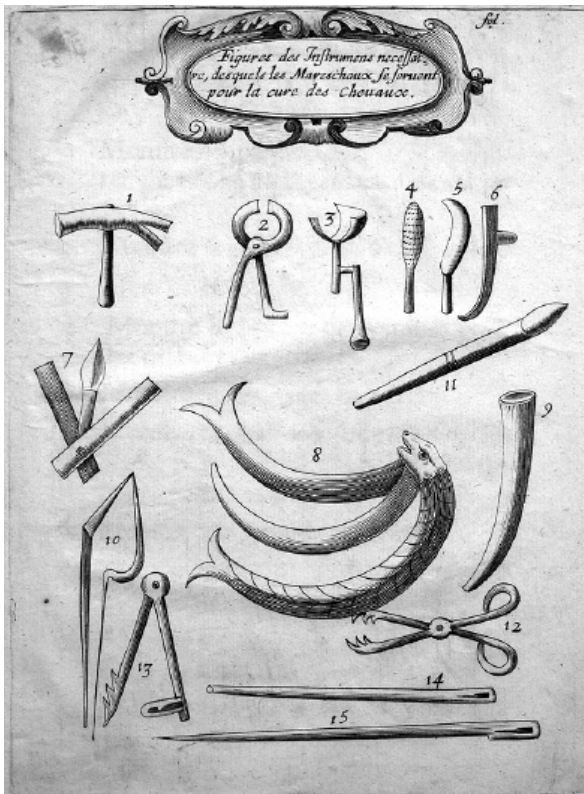 fol.
Figures des Instrumens necessai-
re, desquels les Mareschaux se seruent
pour la cure des Cheuaux.
1
2
3
4
5
6
7
8
9
10
11
12
13
14
15